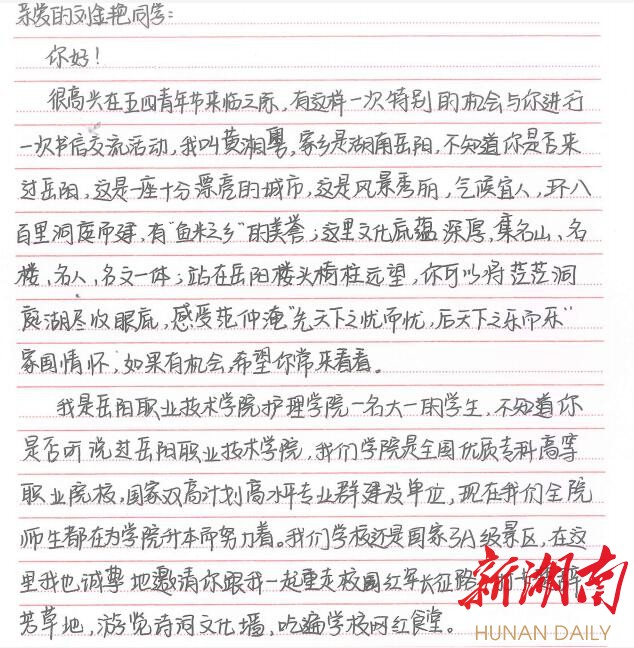 亲爱的刘金艳同学：
你好！
很高兴在五四青年节来临之际，有这样一次特别的机会与你进行
一次书信交流活动，我叫黄湘粤，家乡是湖南岳阳，不知道你是否来
过岳阳，这是一座十分漂亮的城市，这是风景秀丽，气候宜人，环八
百里洞庭而建，有“鱼米之乡”的美誉；这里文化底蕴深厚，集名山、名
楼、名人、名文一体；站在岳阳楼头椅柱远望，你可以将茫茫洞
庭湖尽收眼底，感受范仲淹“先天下之忧而忧，后天下之乐而乐”
家国情怀，如果有机会，希望你常来看看。
我是岳阳职业技术学院护理学院一名大一的学生，不知道你
是否听说过岳阳职业技术学院，我们学院是全国优质专科高等
职业院校，国家双高计划高水平专业群建设单位，现在我们全院
师生都在为学院升本而努力着。我们学校还是国家3A级景区，在这
里我也诚挚地邀请你跟我一起重走校园红军长征路
芳草地，游览诗词文化墙，吃遍学校网红食堂。
新湖南
HUNAN DAILY